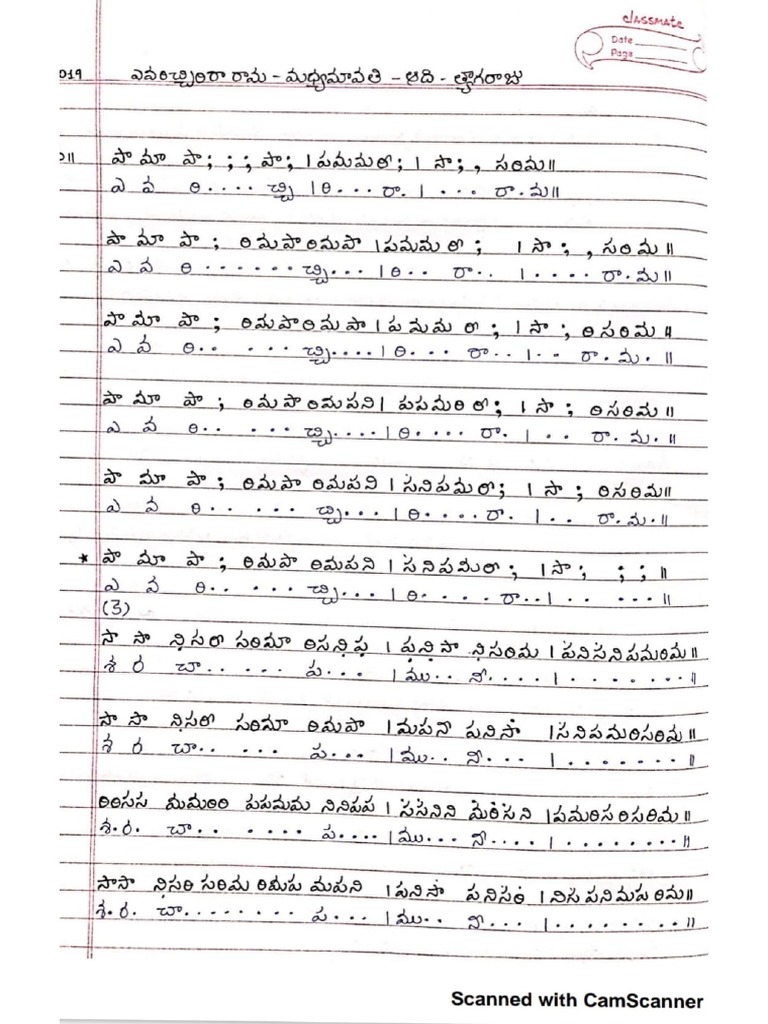 classmate
Date
Page
019 ఎవరిచ్చిరిరా రామ - మధ్యమావతి - ఆది - త్యాగరాజు
ప॥ పా మా పా ; ; ; పా ; । పమమరీ ; । సా ; , సరిమ ॥
ఎ వ రి . . . . చ్చి । రి . . . రా . । . . . రా . మ ॥
పా మా పా ; రిమపా రిమపా । పమమ రీ ; । సా ; , సరిమ ॥
ఎ వ రి . . . . . . చ్చి . . . । రి . . రా . . । . . . . రా . మ ॥
పా మా పా ; రిమపా రిమపా । పమమ రీ ; । సా ; రిసరిమ ॥
ఎ వ రి . . . . . చ్చి . . . . । రి . . . రా . . । . . రా . మ . ॥
పా మా పా ; రిమపా రిమపని । పపమరి రీ ; । సా ; రిసరిమ ॥
ఎ వ రి . . . . . చ్చి . . . . । రి . . . . రా . । . . రా . మ . ॥
పా మా పా ; రిమపా రిమపని । సనిపమరీ ; । సా ; రిసరిమ ॥
ఎ వ రి . . . . . చ్చి . . . । రి . . . . రా . । . . రా . మ . ॥
* పా మా పా ; రిమపా రిమపని । సనిపమరీ ; । సా ; ; ; ॥
ఎ వ రి . . . . . చ్చి . . . । రి . . . . రా . . । . . . . . ॥
(3)
సా సా ని़సరీ సరిమా రిసని़ప़ । ప़ని़సా ని़సరిమ । పనిసనిపమరిమ ॥
శ ర చా . . . . . ప . . . । ము . . నీ . . . . । . . . . . . . ॥
సా సా ని़సరీ సరిమా రిమపా । మపనీ పనిసా । సనిపమరిసరిమ ॥
శ ర చా . . . . . ప . . . । ము . . నీ . . . । . . . . . . . ॥
రిరిసస మమరిరి పపమమ నినిపప । ససనిని మరిసని । పమరిసరిసరిమ ॥
శ . ర . చా . . . . . . ప . . . . । ము . . నీ . . . . । . . . . . . . . ॥
సాసా ని़సరి సరిమ రిమప మపని । పనిసా పనిసరి । నిస పనిమప రిమ ॥
శ . ర . చా . . . . . . . . ప . . . । ము . . నీ . . . । . . . . . . . . ॥
Scanned with CamScanner